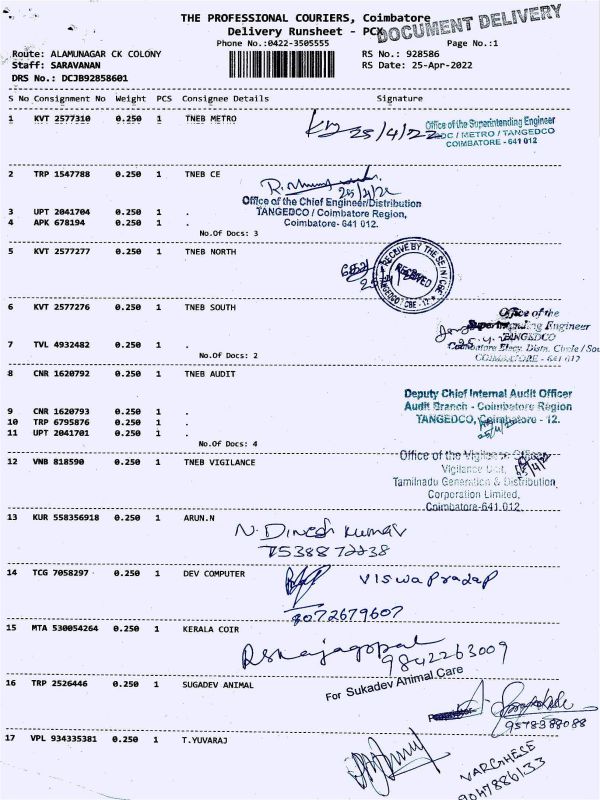 DOCUMENT DELIVERY
THE PROFESSIONAL COURIERS, Coimbatore
Delivery Runsheet - PCX
Phone No.:0422-3505555 Page No.:1
Route: ALAMUNAGAR CK COLONY RS No.: 928586
Staff: SARAVANAN RS Date: 25-Apr-2022
DRS No.: DCJB92858601
S No Consignment No Weight PCS Consignee Details Signature
1 KVT 2577310 0.250 1 TNEB METRO
25/4/22
Office of the Superintending Engineer
/ METRO / TANGEDCO
COIMBATORE - 641 012
2 TRP 1547788 0.250 1 TNEB CE
25/4/22
Office of the Chief Engineer/Distribution
3 UPT 2041704 0.250 1 .
TANGEDCO / Coimbatore Region,
4 APK 678194 0.250 1 .
Coimbatore- 641 012.
No.Of Docs: 3
5 KVT 2577277 0.250 1 TNEB NORTH
RECEIVED
6 KVT 2577276 0.250 1 TNEB SOUTH
Office of the
Superintending Engineer
TANGEDCO
7 TVL 4932482 0.250 1 .
Coimbatore Elecy. Distn. Circle / Sou
COIMBATORE - 641 012
No.Of Docs: 2
8 CNR 1620792 0.250 1 TNEB AUDIT
Deputy Chief Internal Audit Officer
Audit Branch - Coimbatore Region
9 CNR 1620793 0.250 1 .
TANGEDCO, Coimbatore - 12.
10 TRP 6795876 0.250 1 .
11 UPT 2041701 0.250 1 .
No.Of Docs: 4
12 VNB 818590 0.250 1 TNEB VIGILANCE
Office of the Vigilance Officer
Vigilance Unit,
Tamilnadu Generation & Distribution
Corporation Limited,
Coimbatore-641.012.
13 KUR 558356918 0.250 1 ARUN.N
N. Dinesh kumar
7538872238
14 TCG 7058297 0.250 1 DEV COMPUTER
Viswa Pradap
8072679607
15 MTA 530054264 0.250 1 KERALA COIR
Rsrajagopal
9842263009
16 TRP 2526446 0.250 1 SUGADEV ANIMAL
For Sukadev Animal Care
9578388088
17 VPL 934335381 0.250 1 T.YUVARAJ
VARGHESE
9047886133